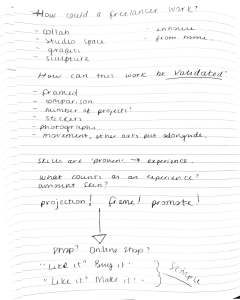 How could a freelancer work?
- collab
- studio space
- graffiti
- sculpture
- inhouse
- from home
How can this work be validated?
- framed
- comparison
- number of projects?
- stickers
- photography
- movement, other arts put alongside.
Skills are 'proven' → experience.
what counts as an experience?
amount seen?
projection! frame! promote!
Shop? Online Shop?
"Like it" Buy it.
"Like it" Make it.